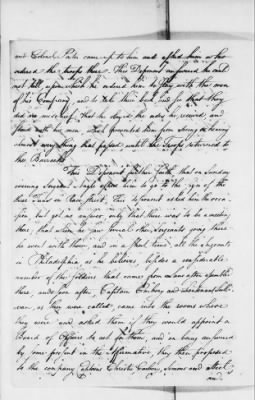 and Colonel Pater came up to him and asked him who
ordered the troops there. This Deponent answered he could
not tell, upon which he ordered him to stay with the men
of his Company, and to take them back, and see that they
did no mischief, that he obeyed the orders he received, and
staid with his men, which prevented him from seeing or hearing
almost any thing that passed, until the Troops returned to
the Barracks.
This Deponent further saith, that on Sunday
evening Serjeant Nagle asked him to go to the sign of the
three Tuns in Race street, this deponent asked him the occa-
sion, but got no answer, only that there was to be a meeting
there, that when he was formed other Serjeants going there
he went with them, and in a short time, all the Serjeants
in Philadelphia, as he believes, besides a considerable
number of the soldiers that came from Lancaster assembled
there, and soon after Captain Carbery and Lieutenant Sulli-
van, as they were called, came into the rooms where
they were and asked them if they would appoint a
Board of Officers to act for them, and on being answered
by one Serjeant in the affirmative, they then proposed
to the company Captains Christie, Carbery, Symonds and Steel
and